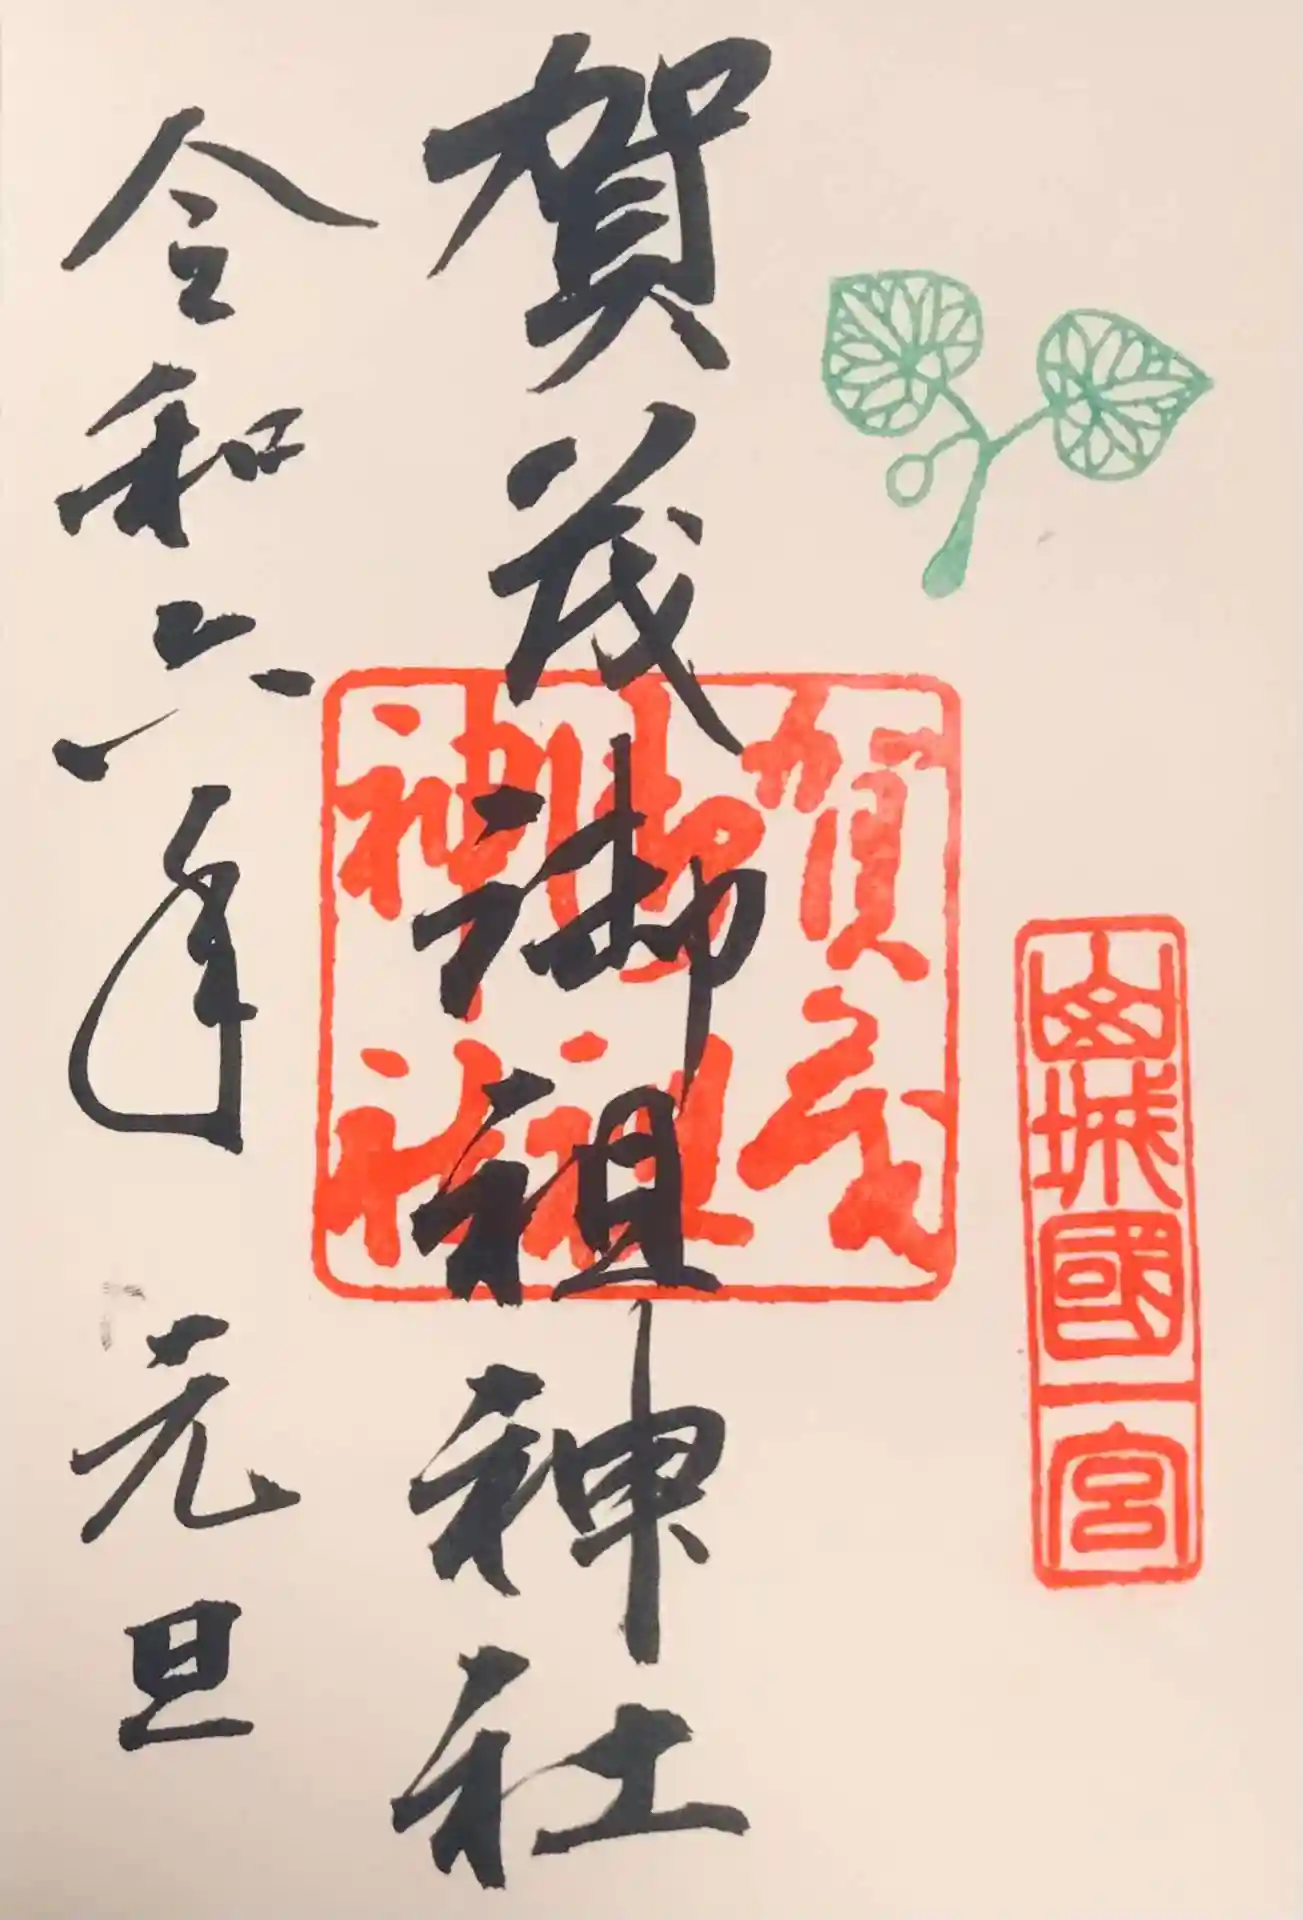 山城國一宮
賀茂御祖神社
賀茂
御祖
神社
令和六年 元旦